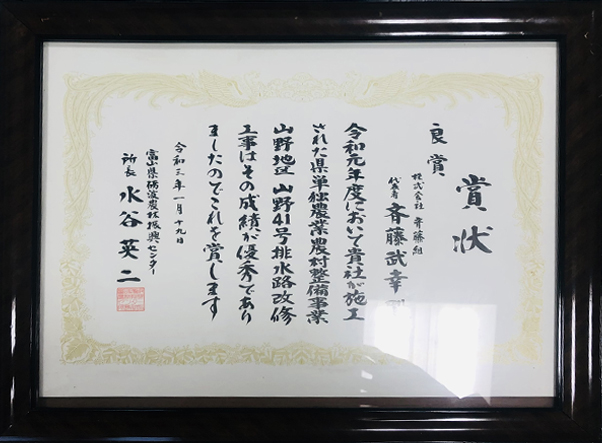 賞状
良賞
株式会社 斉藤組
代表者 斉藤武幸 殿
令和元年度において貴社が施工
された県単独農業農村整備事業
山野地区 山野41号排水路改修
工事はその成績が優秀であり
ましたのでこれを賞します
令和三年一月十九日
富山県砺波農林振興センター
所長 水谷英二